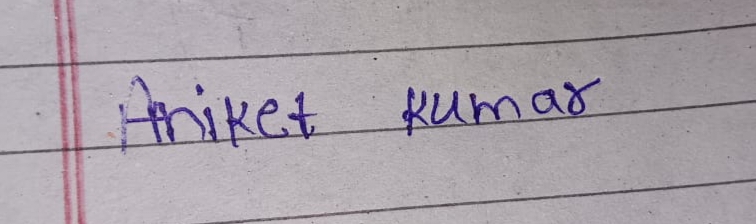 Aniket kumar